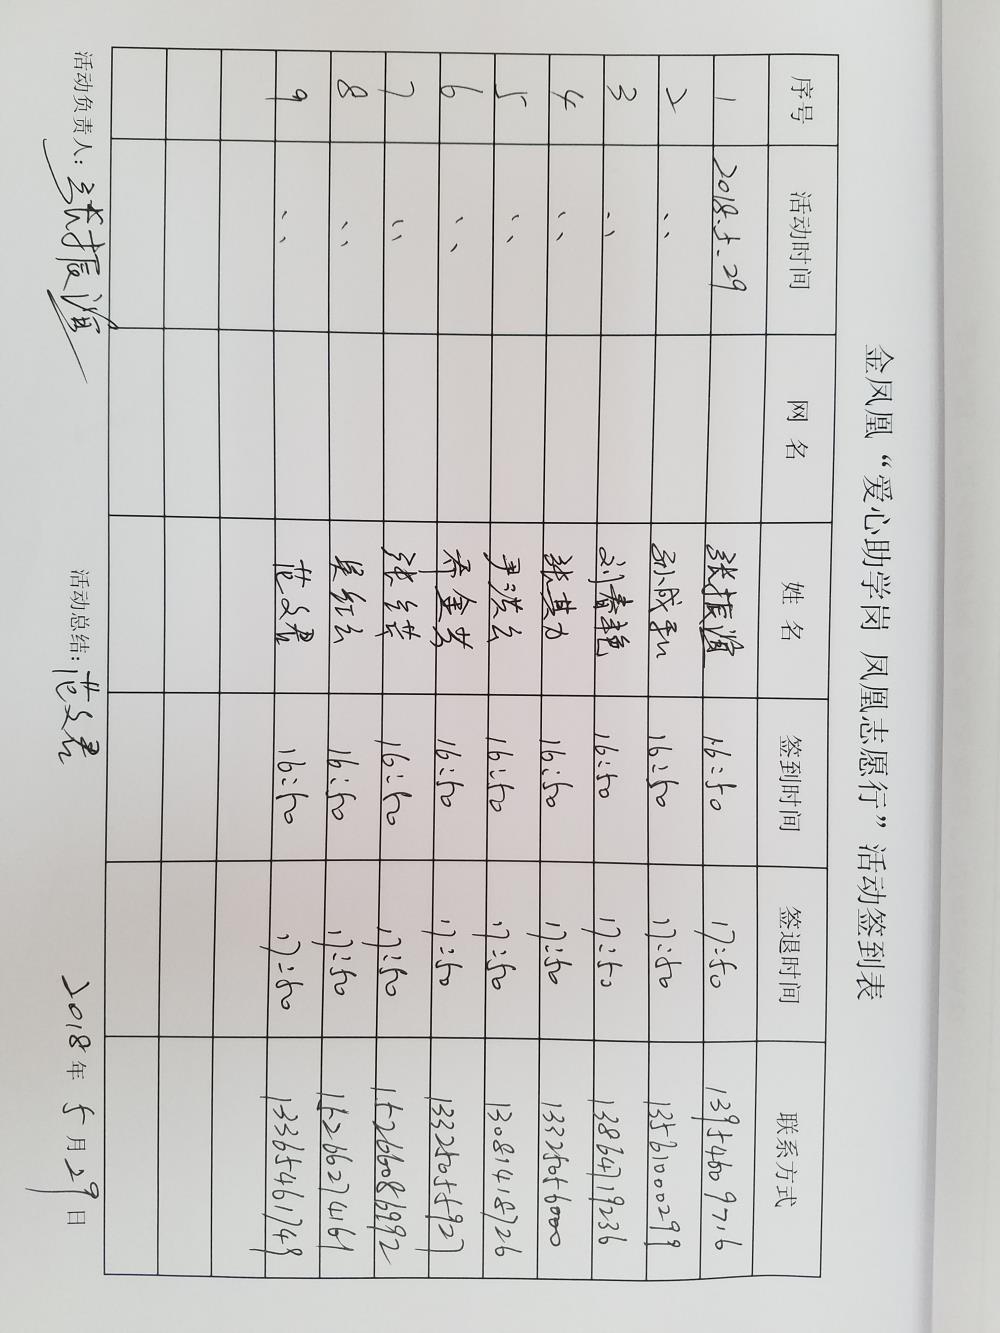 金凤凰“爱心助学岗 凤凰志愿行”活动签到表
序号 活动时间 网 名 姓 名 签到时间 签退时间 联系方式
1 2018.5.29 张振谊 16:50 17:50 13954609716
2 〃 孙成利 16:50 17:50 13561000299
3 〃 刘春艳 16:50 17:50 13864719236
4 〃 张其力 16:50 17:50 13325056000
5 〃 尹洪云 16:50 17:50 13081418726
6 〃 乔金芳 16:50 17:50 13325055927
7 〃 张 16:50 17:50 15266086992
8 〃 吴红云 16:50 17:50 15266274161
9 〃 范文君 16:50 17:50 13365461749
活动负责人：张振谊 活动总结：范文君 2018年5月29日